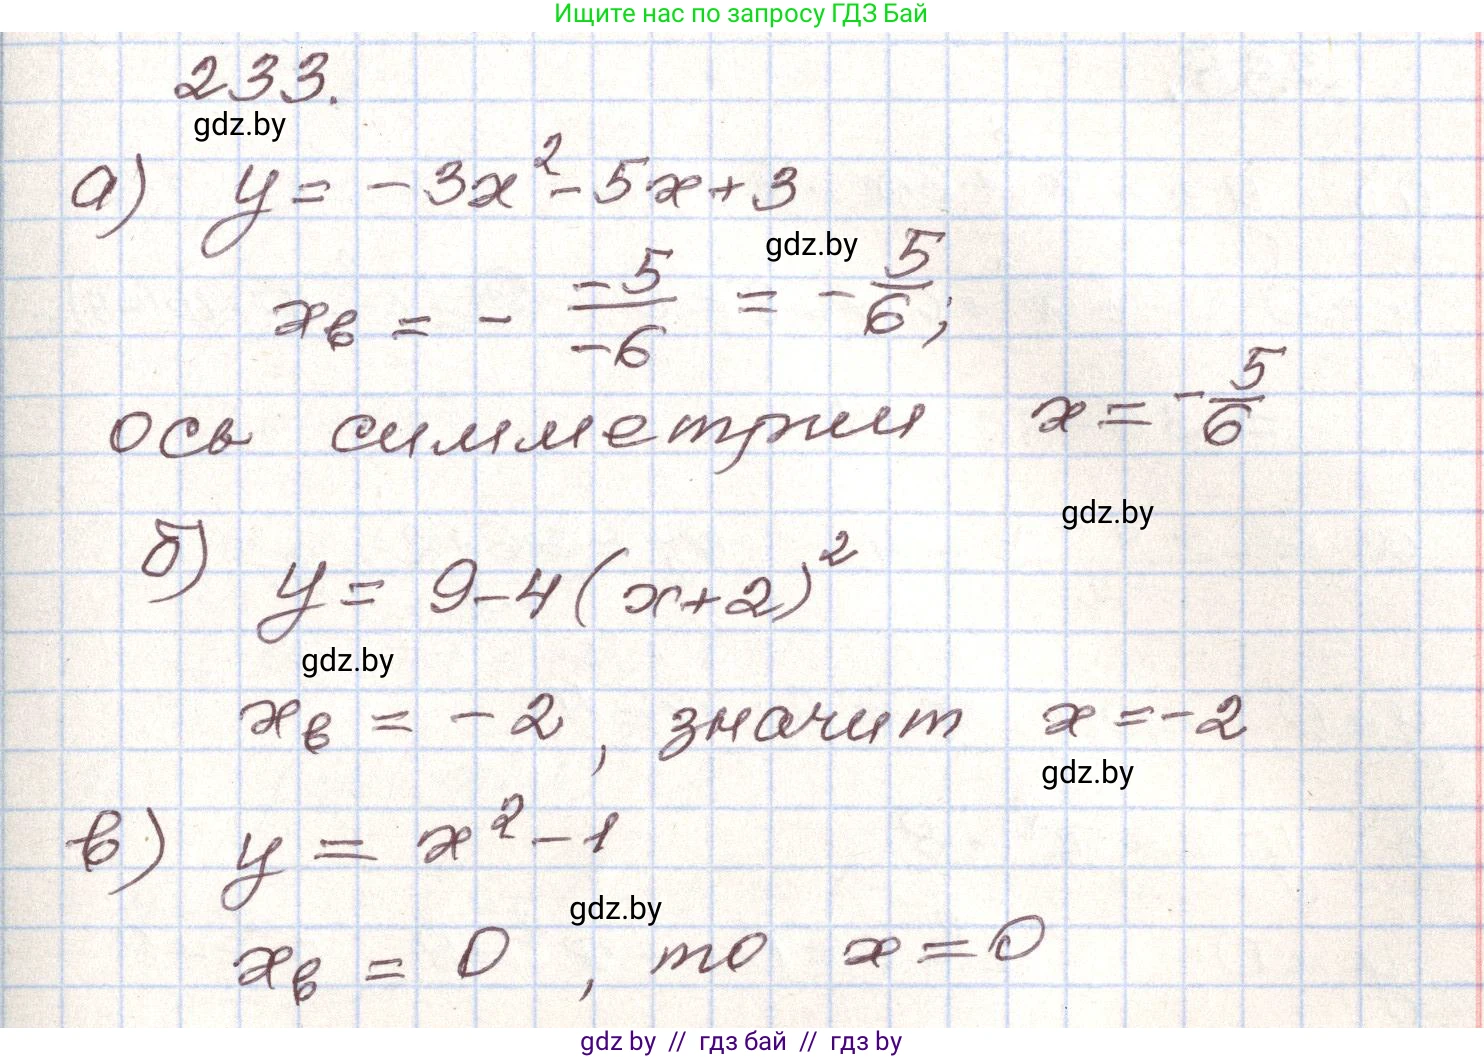 Ищите нас по запросу ГДЗ Бай
233.
gdz.by
а) y = -3x² - 5x + 3
gdz.by
xв = - -5/-6 = -5/6;
ось симметрии x = -5/6
gdz.by
б) y = 9 - 4(x+2)²
gdz.by
xв = -2, значит x = -2
gdz.by
в) y = x² - 1
gdz.by
xв = 0, то x = 0
gdz.by // гдз бай // гдз by